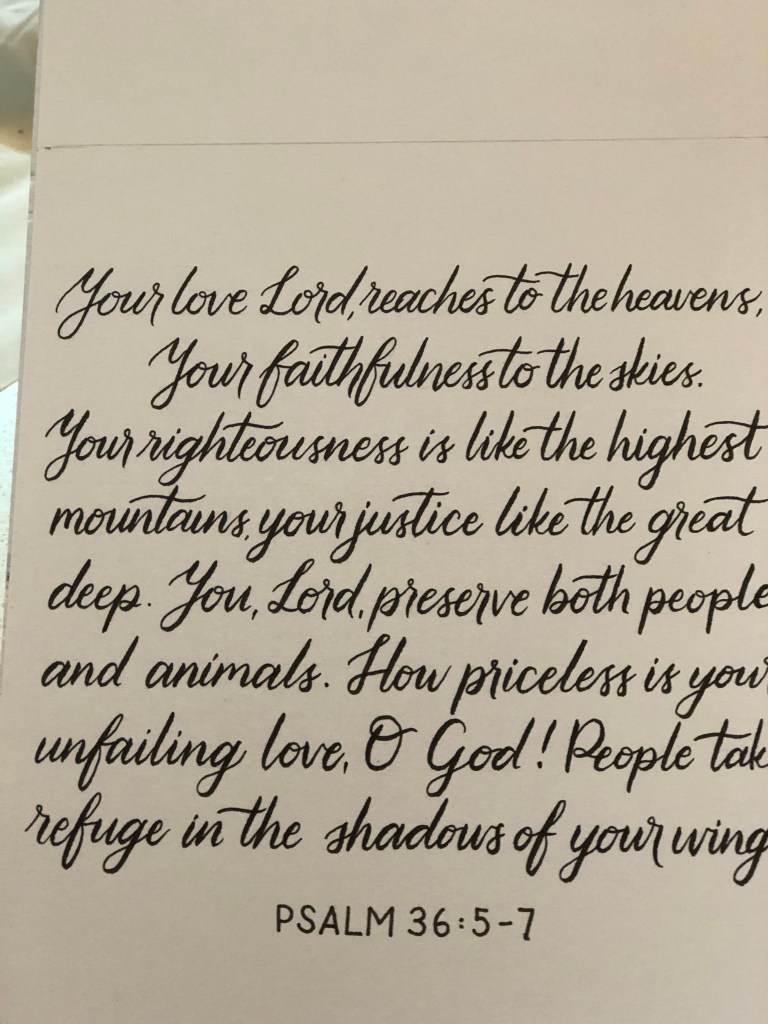 Your love Lord, reaches to the heavens,
Your faithfulness to the skies.
Your righteousness is like the highest
mountains, your justice like the great
deep. You, Lord, preserve both people
and animals. How priceless is your
unfailing love, O God! People tak
refuge in the shadows of your wing
PSALM 36:5-7